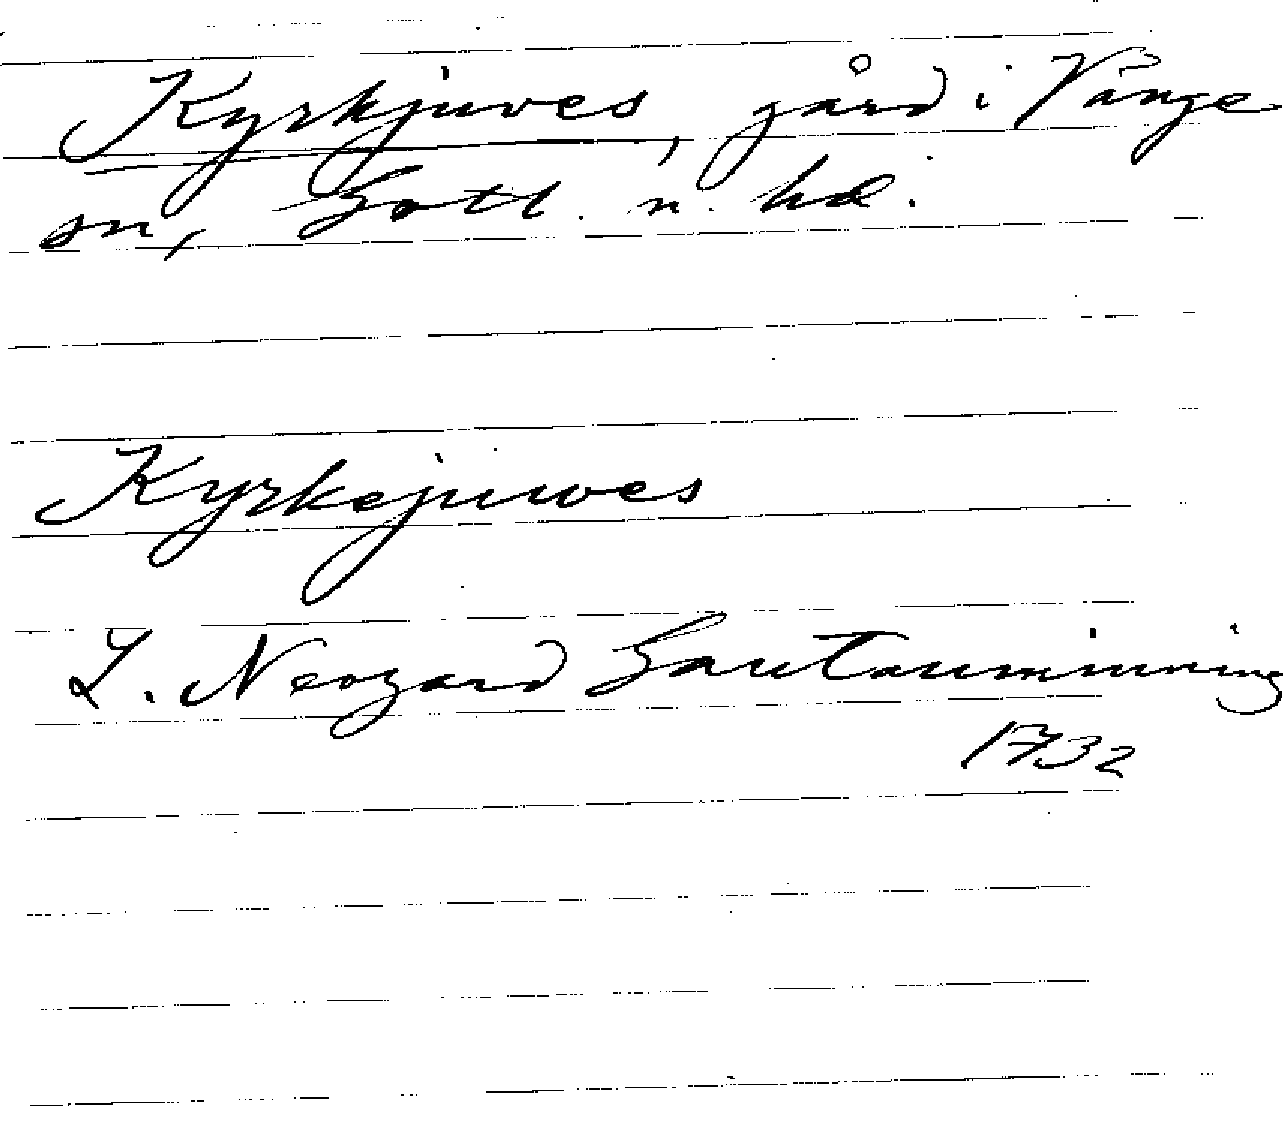 Kyrkjuves, gård i Vänge
sn, Gotl. n. hd.
Kyrkejuves
L. Neogard Gautauminning
1732